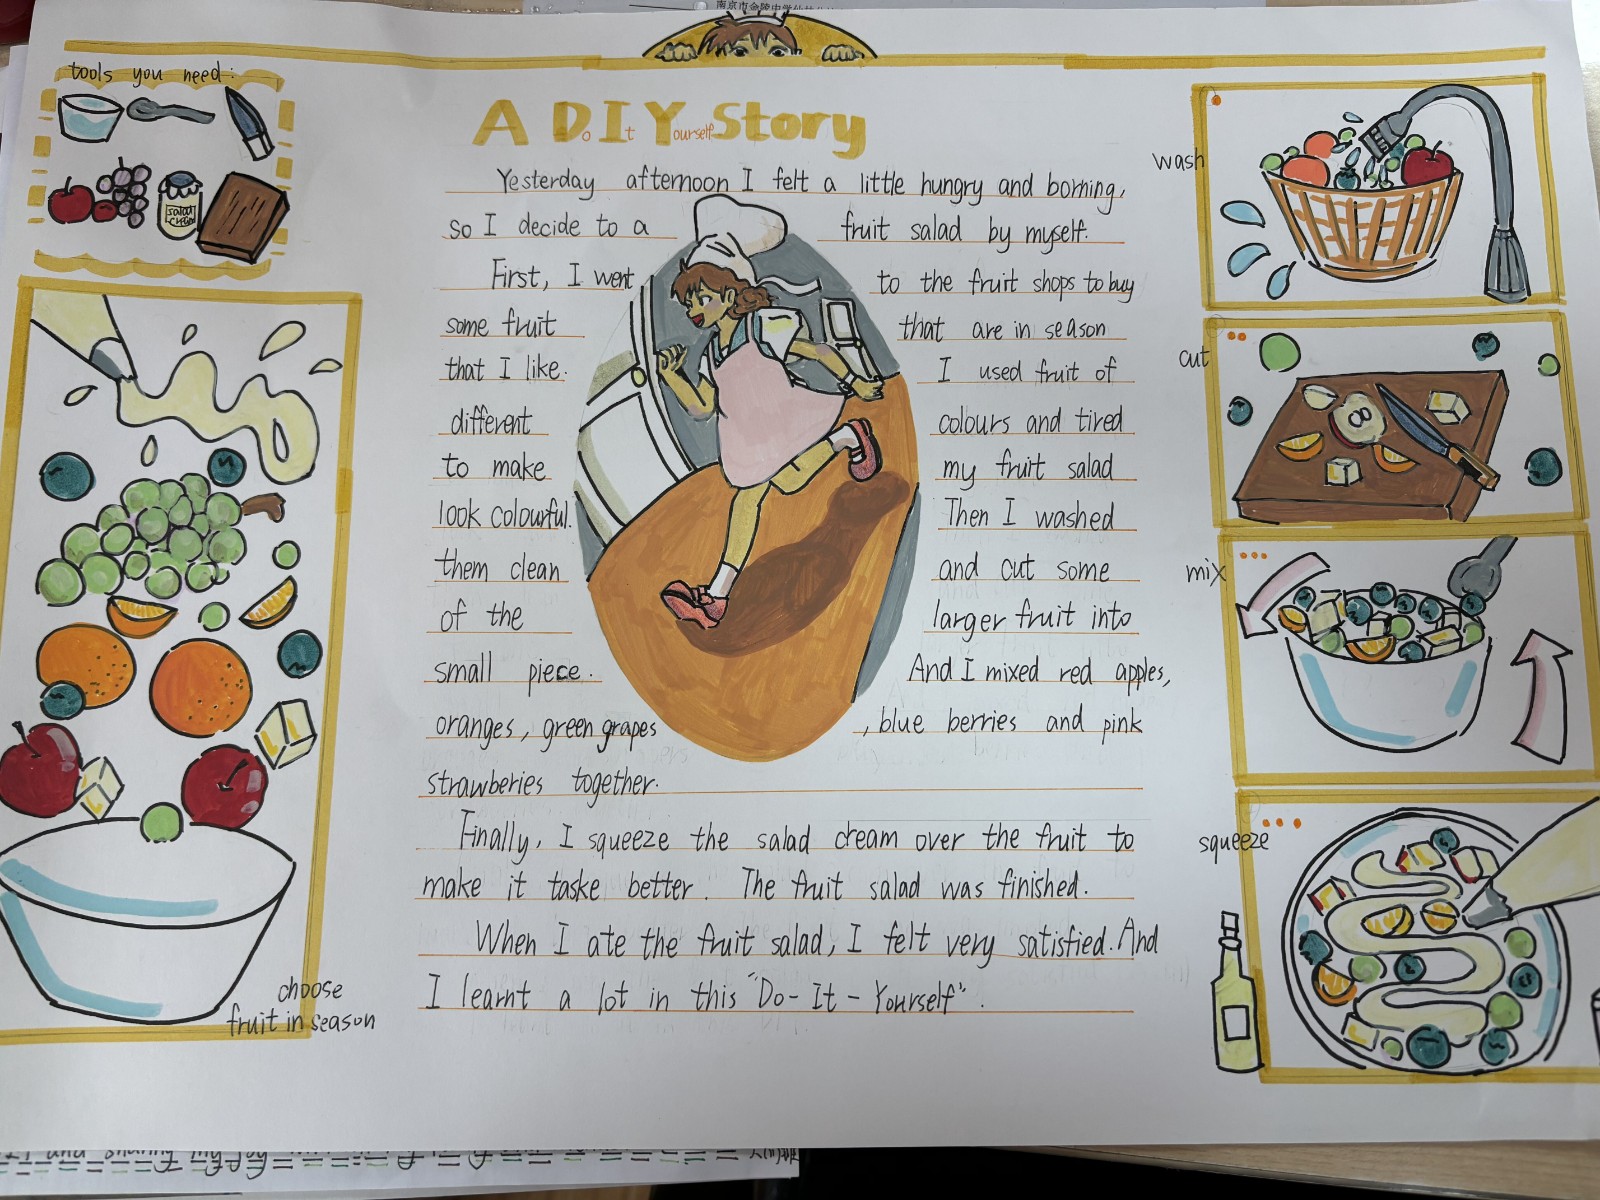 南京市金陵中学仙林分校
tools you need:
salad cream
A DIY Story
Do It Yourself
Yesterday afternoon I felt a little hungry and borning,
so I decide to a fruit salad by myself.
First, I went to the fruit shops to buy
some fruit that are in season
that I like. I used fruit of
different colours and tired
to make my fruit salad
look colourful. Then I washed
them clean and cut some
of the larger fruit into
small piece. And I mixed red apples,
oranges, green grapes, blue berries and pink
strawberies together.
Finally, I squeeze the salad cream over the fruit to
make it taske better. The fruit salad was finished.
When I ate the fruit salad, I felt very satisfied. And
I learnt a lot in this "Do-It-Yourself".
choose
fruit in season
wash
cut
mix
squeeze